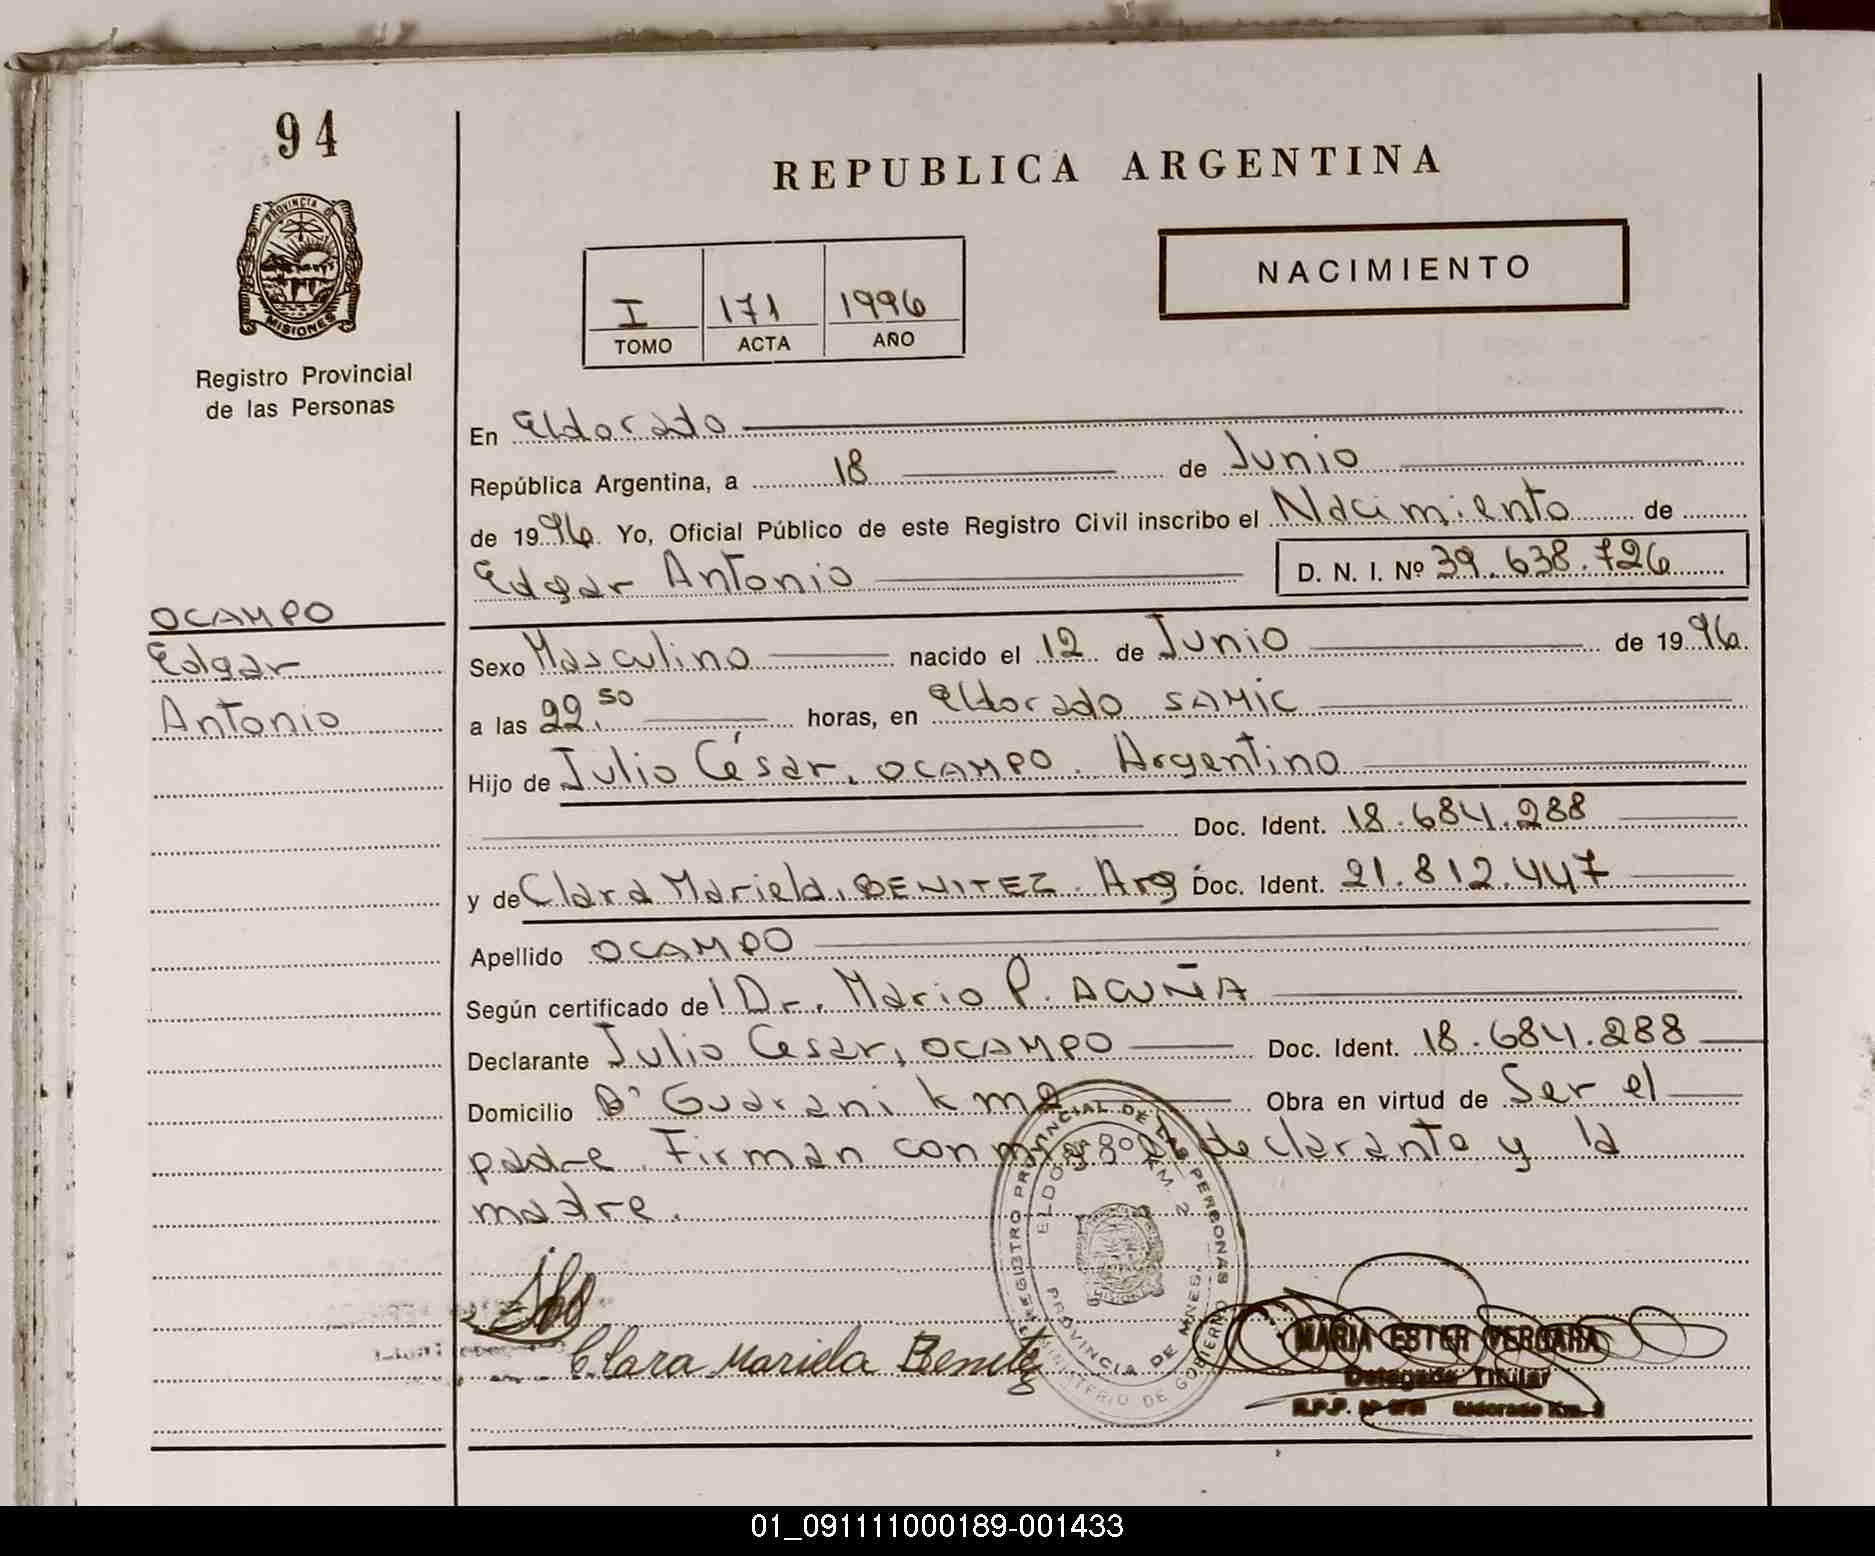 94
REPUBLICA ARGENTINA
PROVINCIA DE
MISIONES
NACIMIENTO
I 171 1996
TOMO ACTA AÑO
Registro Provincial
de las Personas
En Eldorado
República Argentina, a 18 de Junio
de 1996. Yo, Oficial Público de este Registro Civil inscribo el Nacimiento de
Edgar Antonio D. N. I. Nº 39.638.726
OCAMPO
Edgar
Antonio
Sexo Masculino nacido el 12 de Junio de 1996.
a las 22.50 horas, en Eldorado SAMIC
Hijo de Julio César, OCAMPO. Argentino
Doc. Ident. 18.684.288
y de Clara Mariela, BENITEZ. Arg Doc. Ident. 21.812.447
Apellido OCAMPO
Según certificado del Dr. Mario P. ACUÑA
Declarante Julio Cesar, OCAMPO Doc. Ident. 18.684.288
Domicilio Bº Guarani km Obra en virtud de Ser el
padre. Firman conmigo el declarante y la
madre.
REGISTRO PROVINCIAL DE LAS PERSONAS
ELDORADO KM. 2
PROVINCIA DE MNES.
MINISTERIO DE GOBIERNO
Clara Mariela Benitez
MARIA ESTER VERGARA
Delegada Titular
R.P.P. Eldorado Km.
01_091111000189-001433